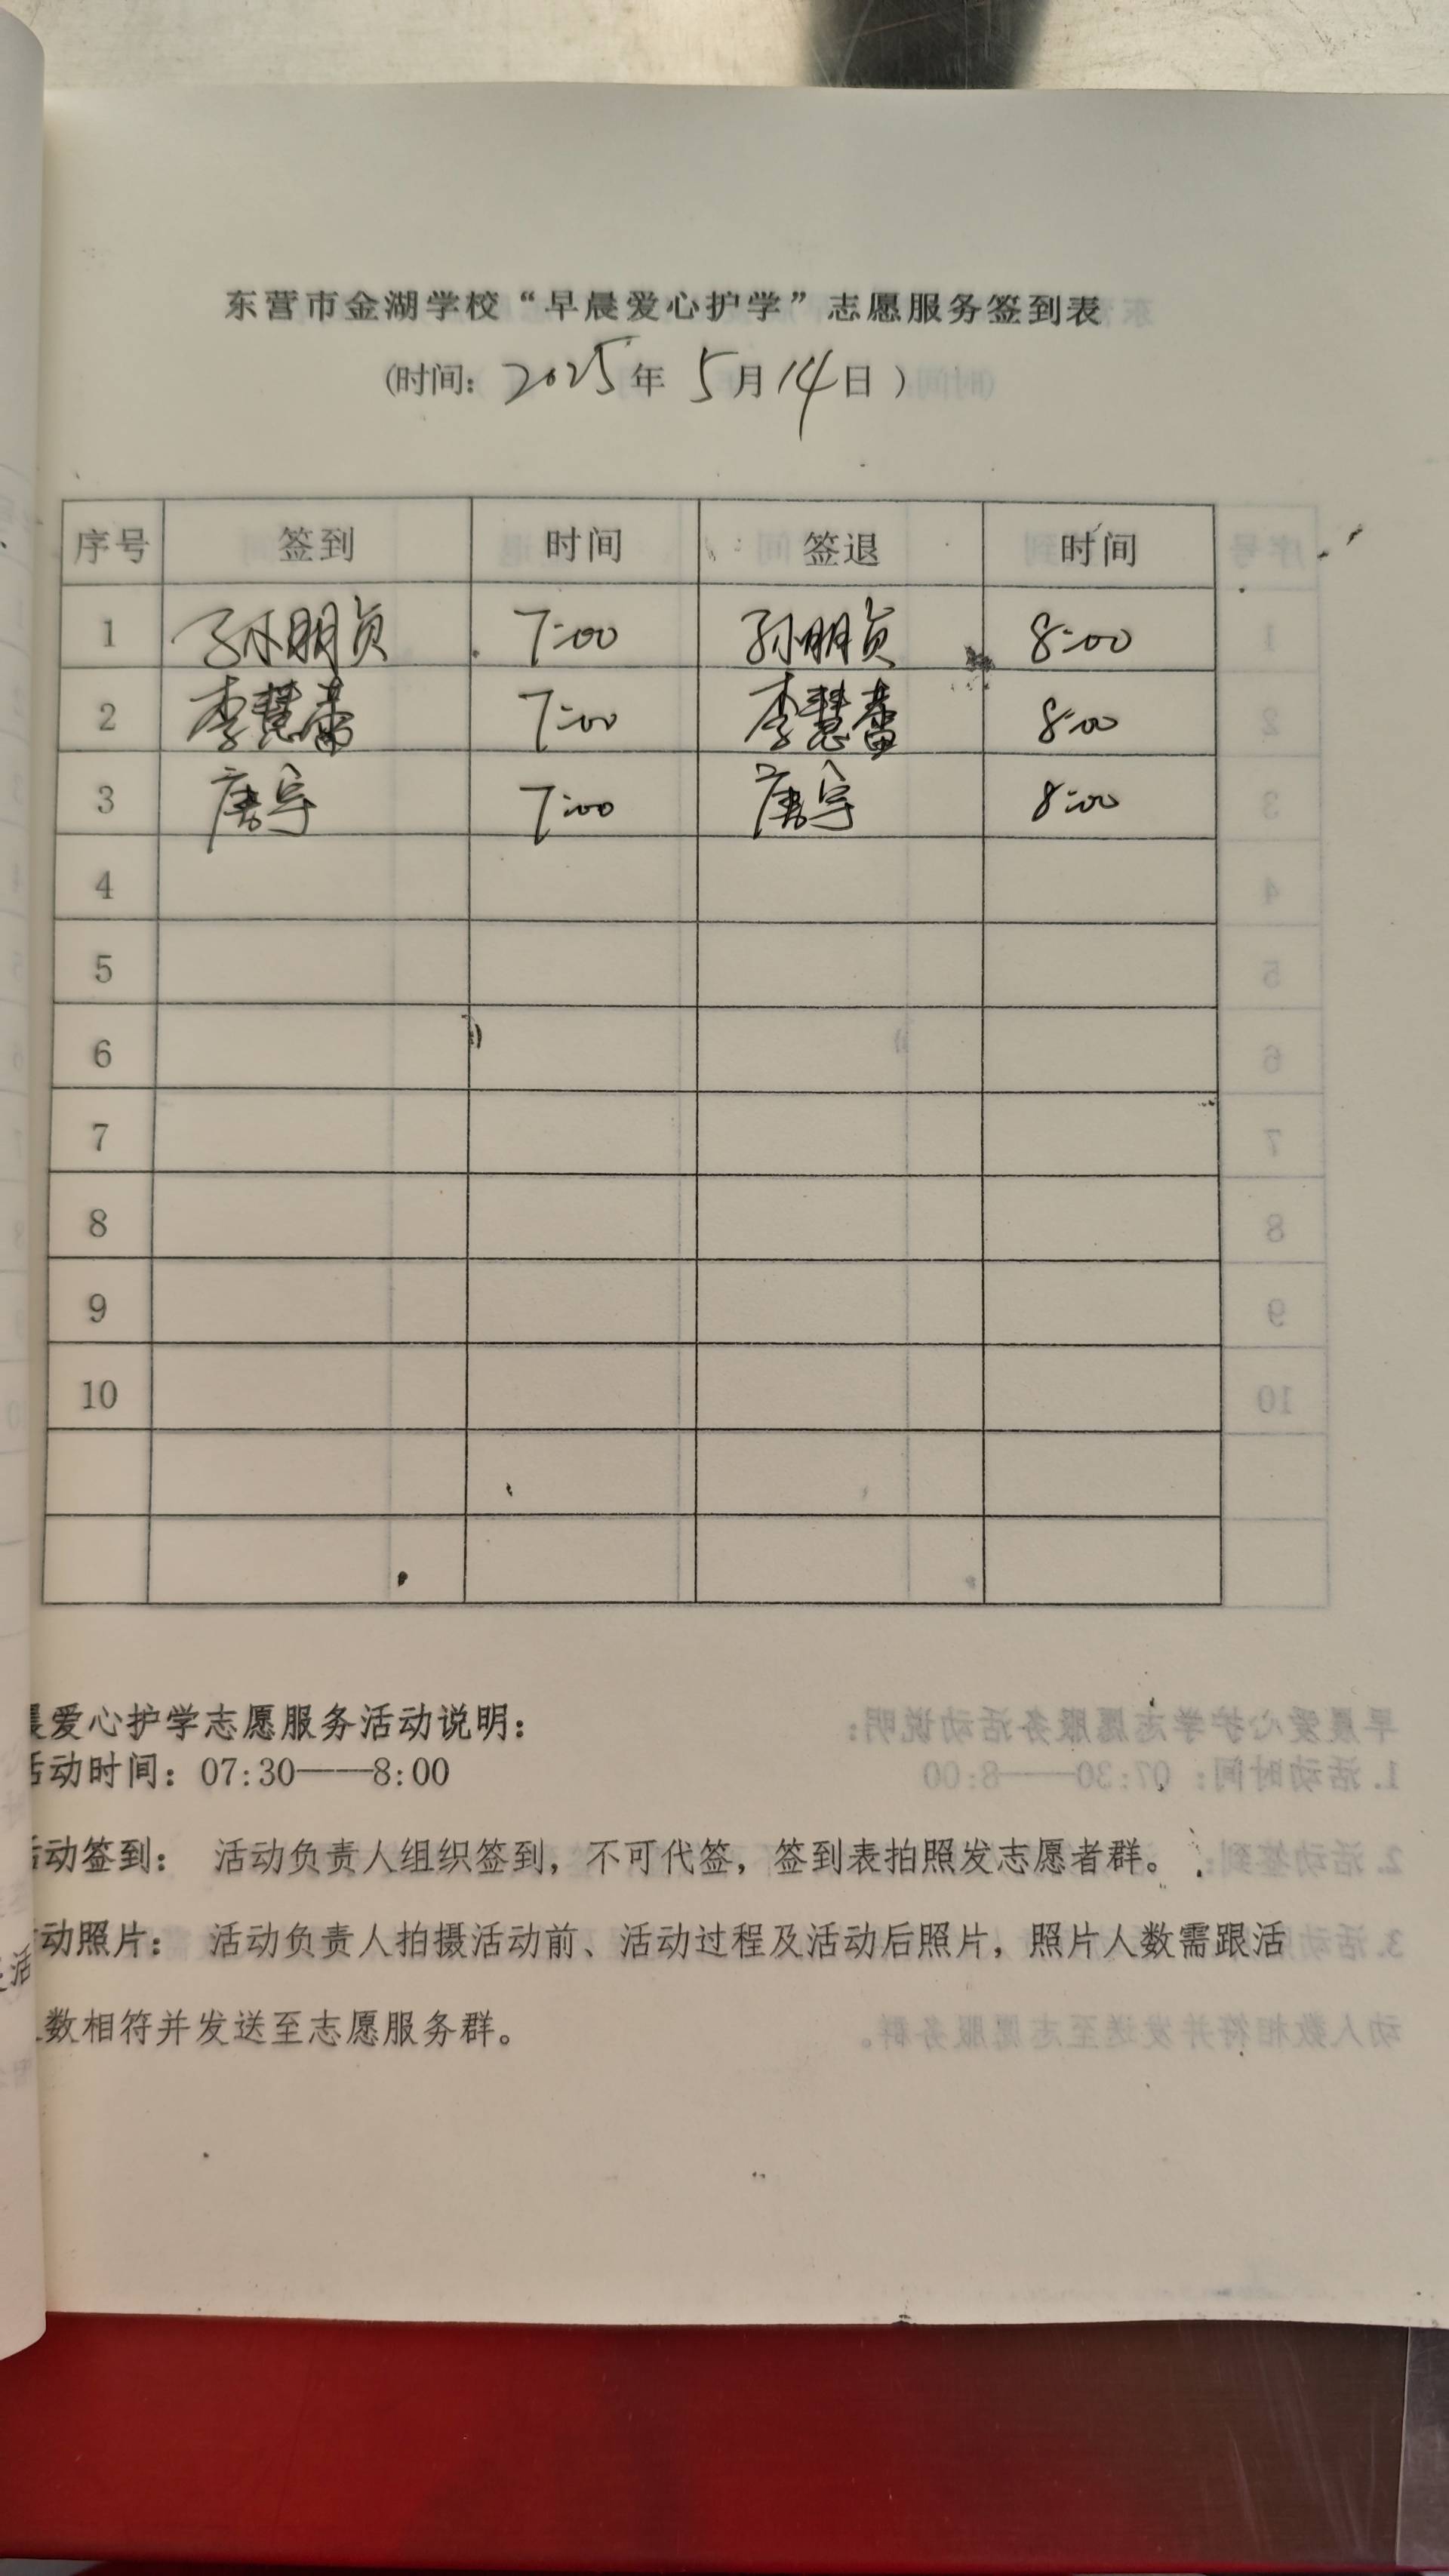 东营市金湖学校“早晨爱心护学”志愿服务签到表
(时间: 2025年 5月14日 )
序号 签到 时间 签退 时间
1 孙明贞 7:00 孙明贞 8:00
2 李慧蕾 7:00 李慧蕾 8:00
3 唐宇 7:00 唐宇 8:00
4
5
6
7
8
9
10
晨爱心护学志愿服务活动说明:
活动时间: 07:30——8:00
活动签到: 活动负责人组织签到, 不可代签, 签到表拍照发志愿者群。
动照片: 活动负责人拍摄活动前、活动过程及活动后照片, 照片人数需跟活
数相符并发送至志愿服务群。